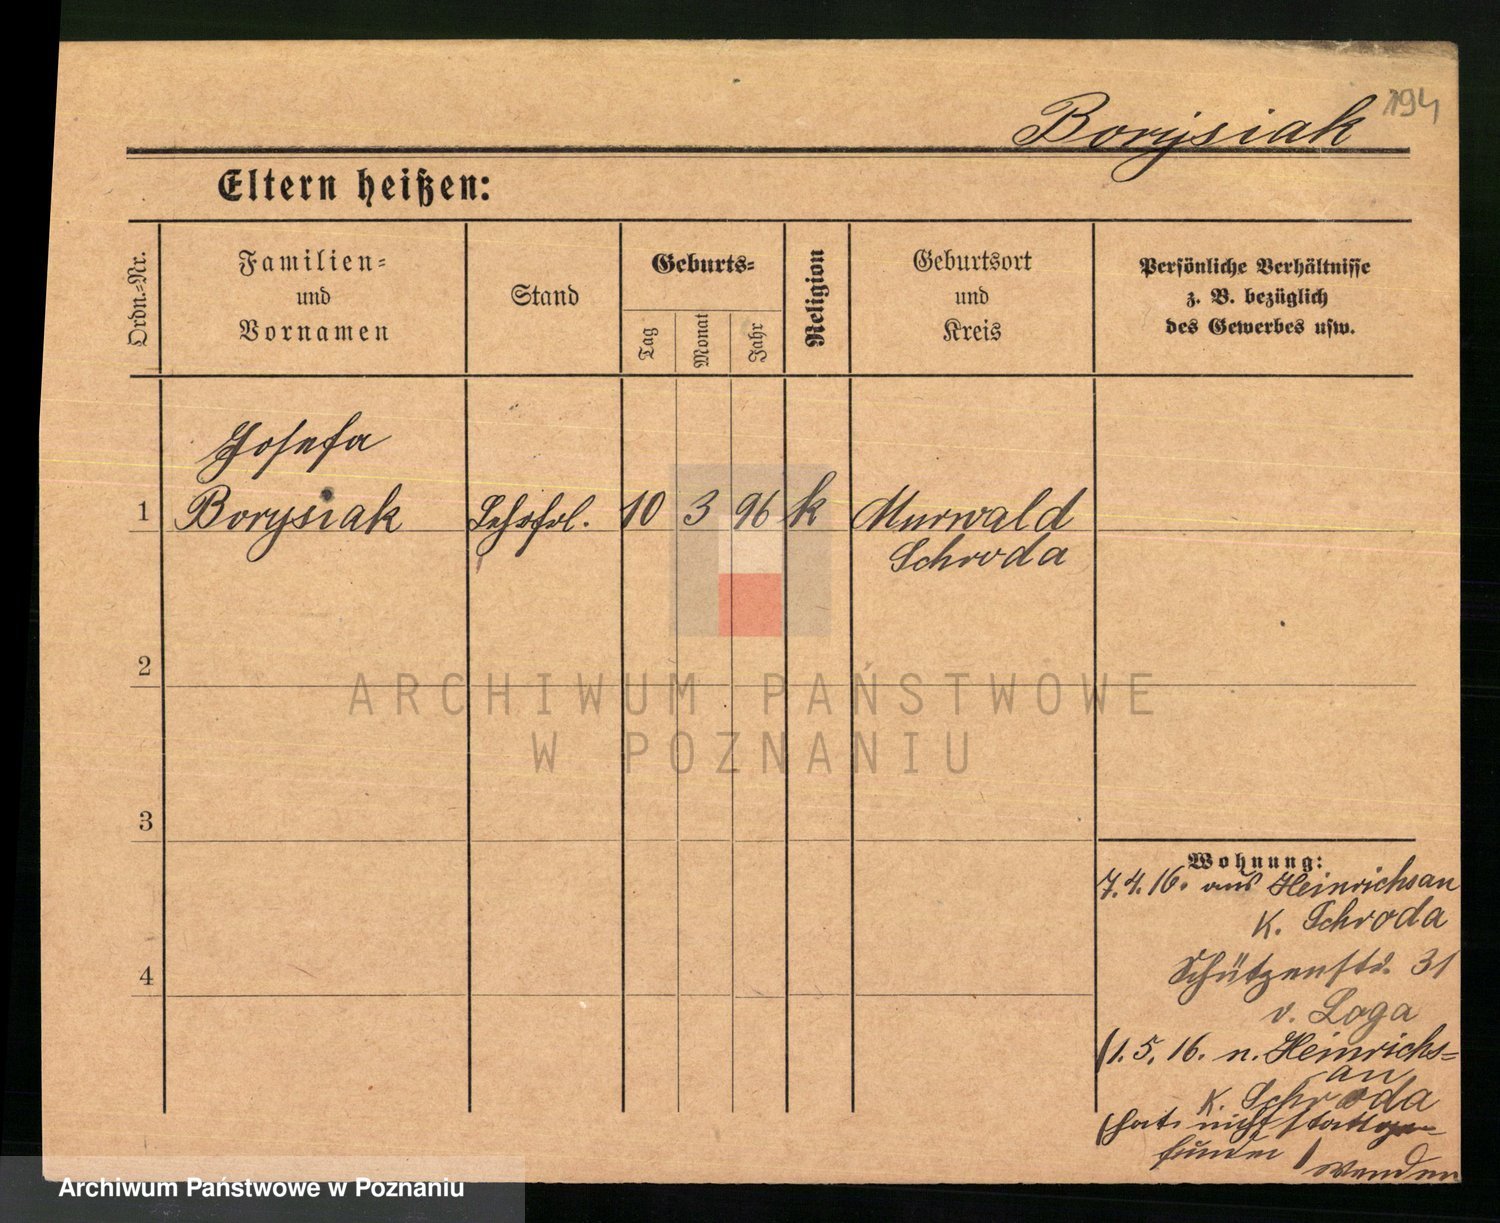 194
Borysiak
Eltern heißen:
Ordn.-Nr.
Familien-
und
Vornamen
Stand
Geburts-
Tag
Monat
Jahr
Religion
Geburtsort
und
Kreis
Persönliche Verhältnisse
z. B. bezüglich
des Gewerbes usw.
Josefa
1 Borysiak Lehrfrl. 10 3 96 k Murwald
Schroda
2
ARCHIWUM PAŃSTWOWE
W POZNANIU
3
4
Wohnung:
7.4.16. aus Heinrichsau
K. Schroda
Schützenstr. 31
v. Loga
(1.5.16. n. Heinrichs=
au
K. Schroda
(hat nicht stattge-
funden
wenden
Archiwum Państwowe w Poznaniu